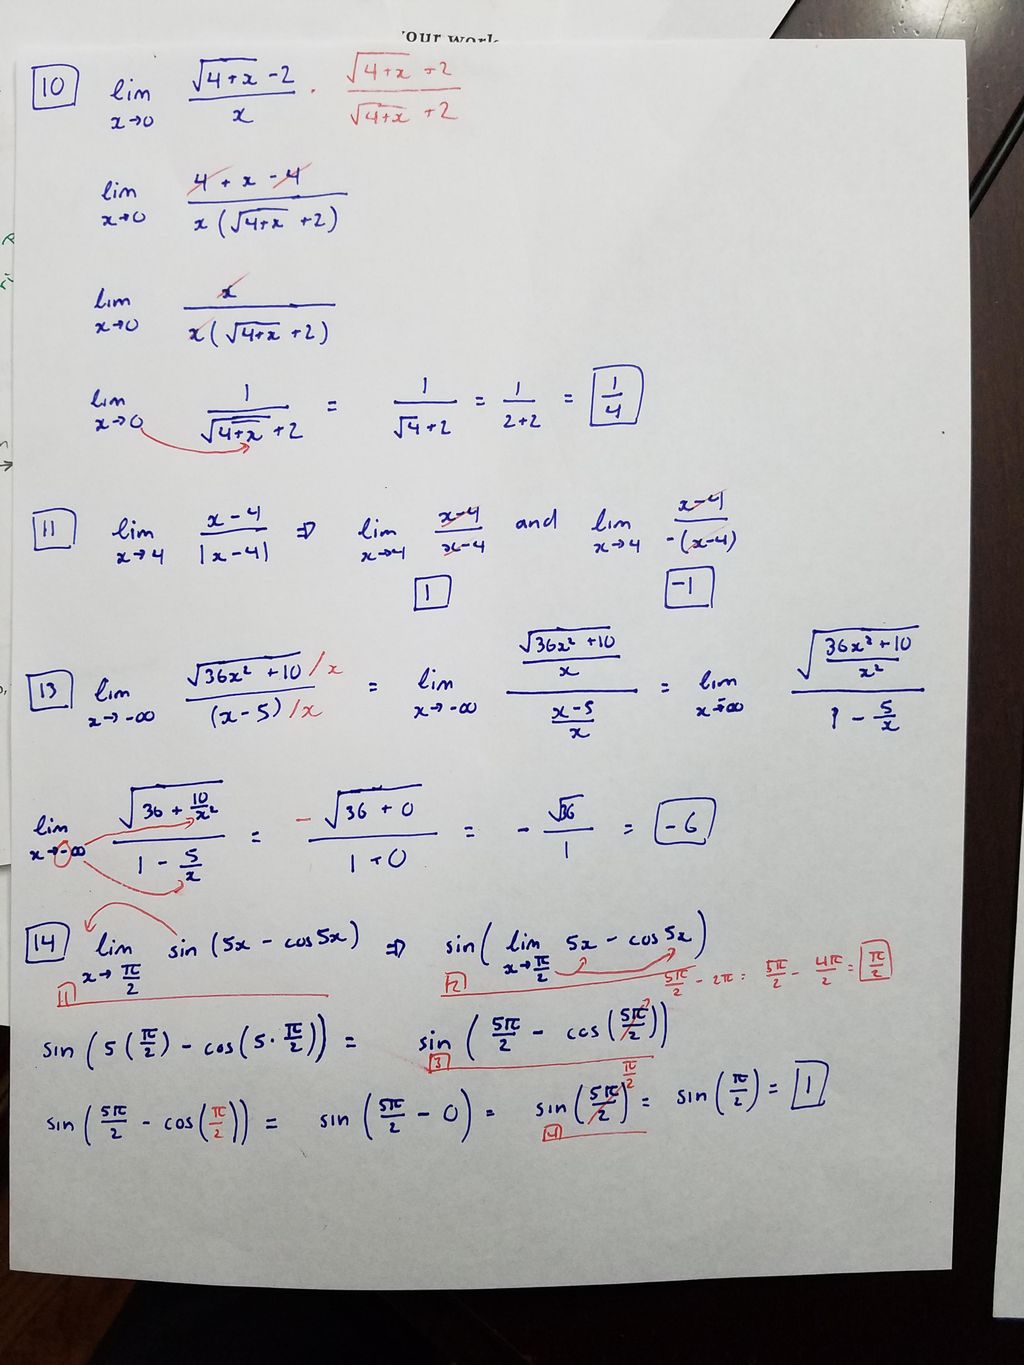 our work
10 lim x→0 (√(4+x) -2)/x · (√(4+x) +2)/(√(4+x) +2)
lim x→0 (4 + x - 4)/(x(√(4+x) +2))
lim x→0 x/(x(√(4+x) +2))
lim x→0 1/(√(4+x) +2) = 1/(√4+2) = 1/(2+2) = 1/4
11 lim x→4 (x-4)/|x-4| ⇒ lim x→4 (x-4)/(x-4) and lim x→4 (x-4)/(-(x-4))
1 -1
13 lim x→-∞ (√(36x² +10) /x)/((x-5) /x) = lim x→-∞ (√(36x² +10)/x)/((x-5)/x) = lim x→-∞ √((36x² +10)/x²)/(1 - 5/x)
lim x→-∞ √(36 + 10/x²)/(1 - 5/x) = -√(36 + 0)/(1+0) = - √36/1 = -6
14 lim x→π/2 sin (5x - cos5x) ⇒ sin( lim x→π/2 5x - cos5x)
1 2 5π/2 - 2π = 5π/2 - 4π/2 = π/2
sin(5(π/2) - cos(5·π/2)) = sin(5π/2 - cos(5π/2))
3 π/2
sin(5π/2 - cos(π/2)) = sin(5π/2 - 0) = sin(5π/2) = sin(π/2) = 1
4